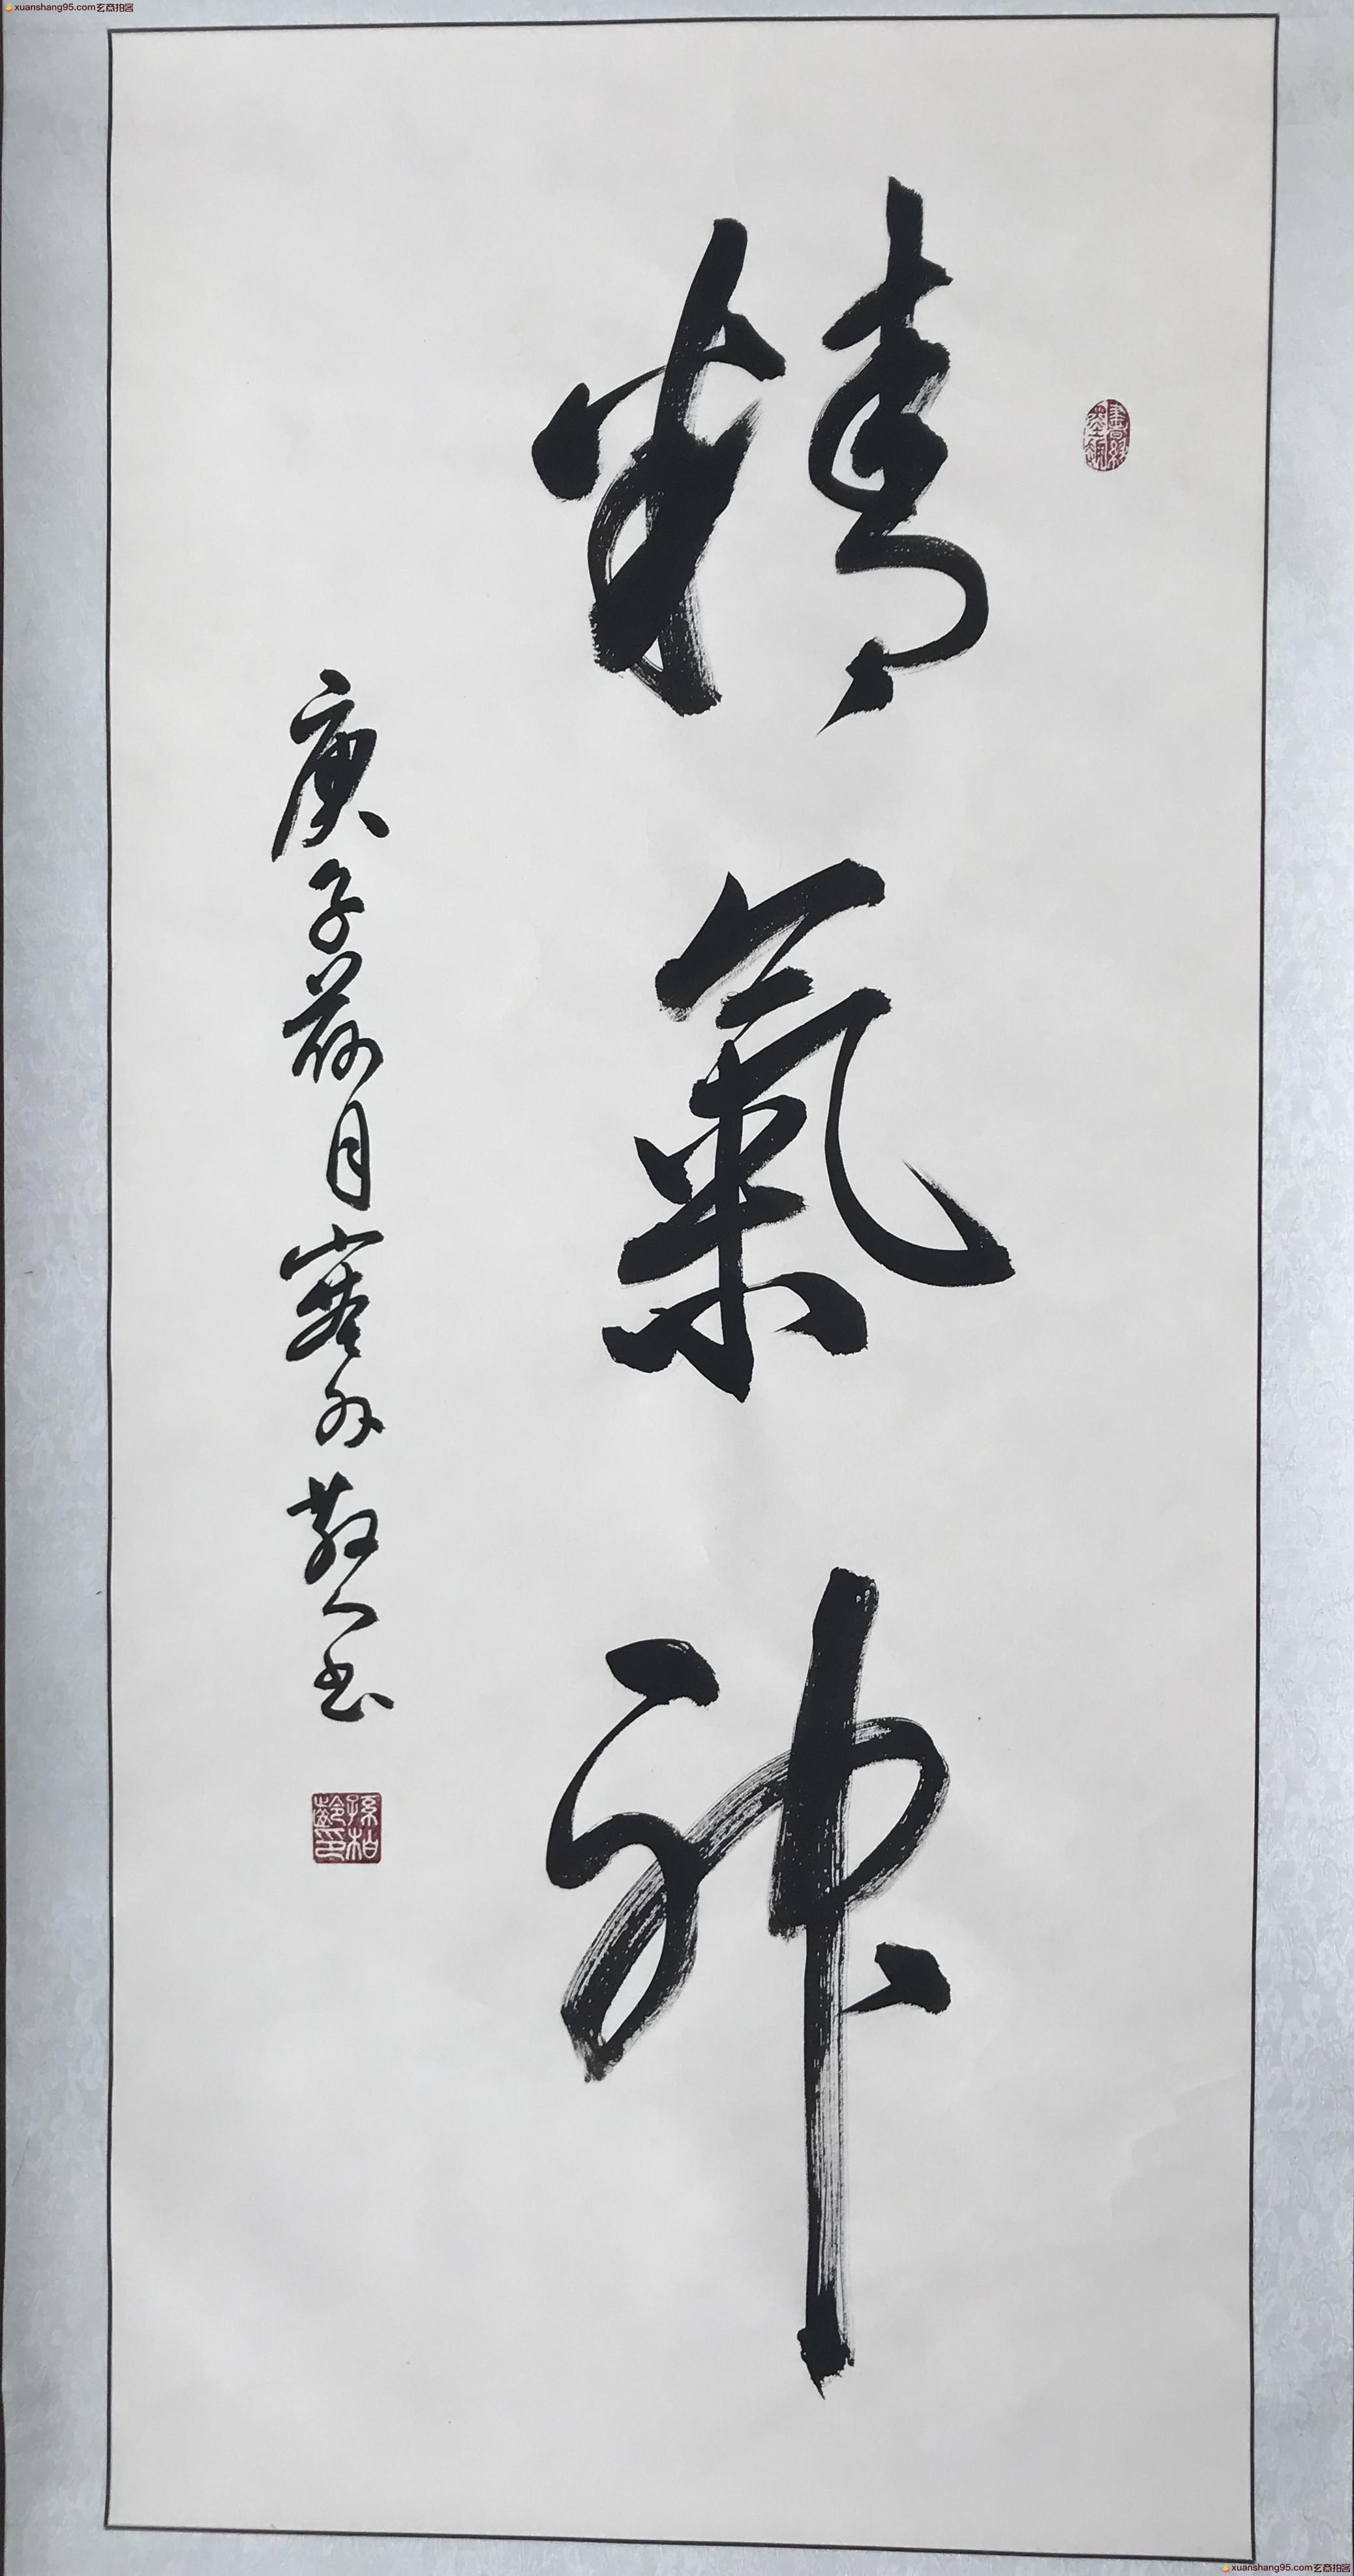 xuanshang95.com玄商拍客
精氣神
庚子荷月塞外散人书
孫柏齡印
xuanshang95.com玄商拍客